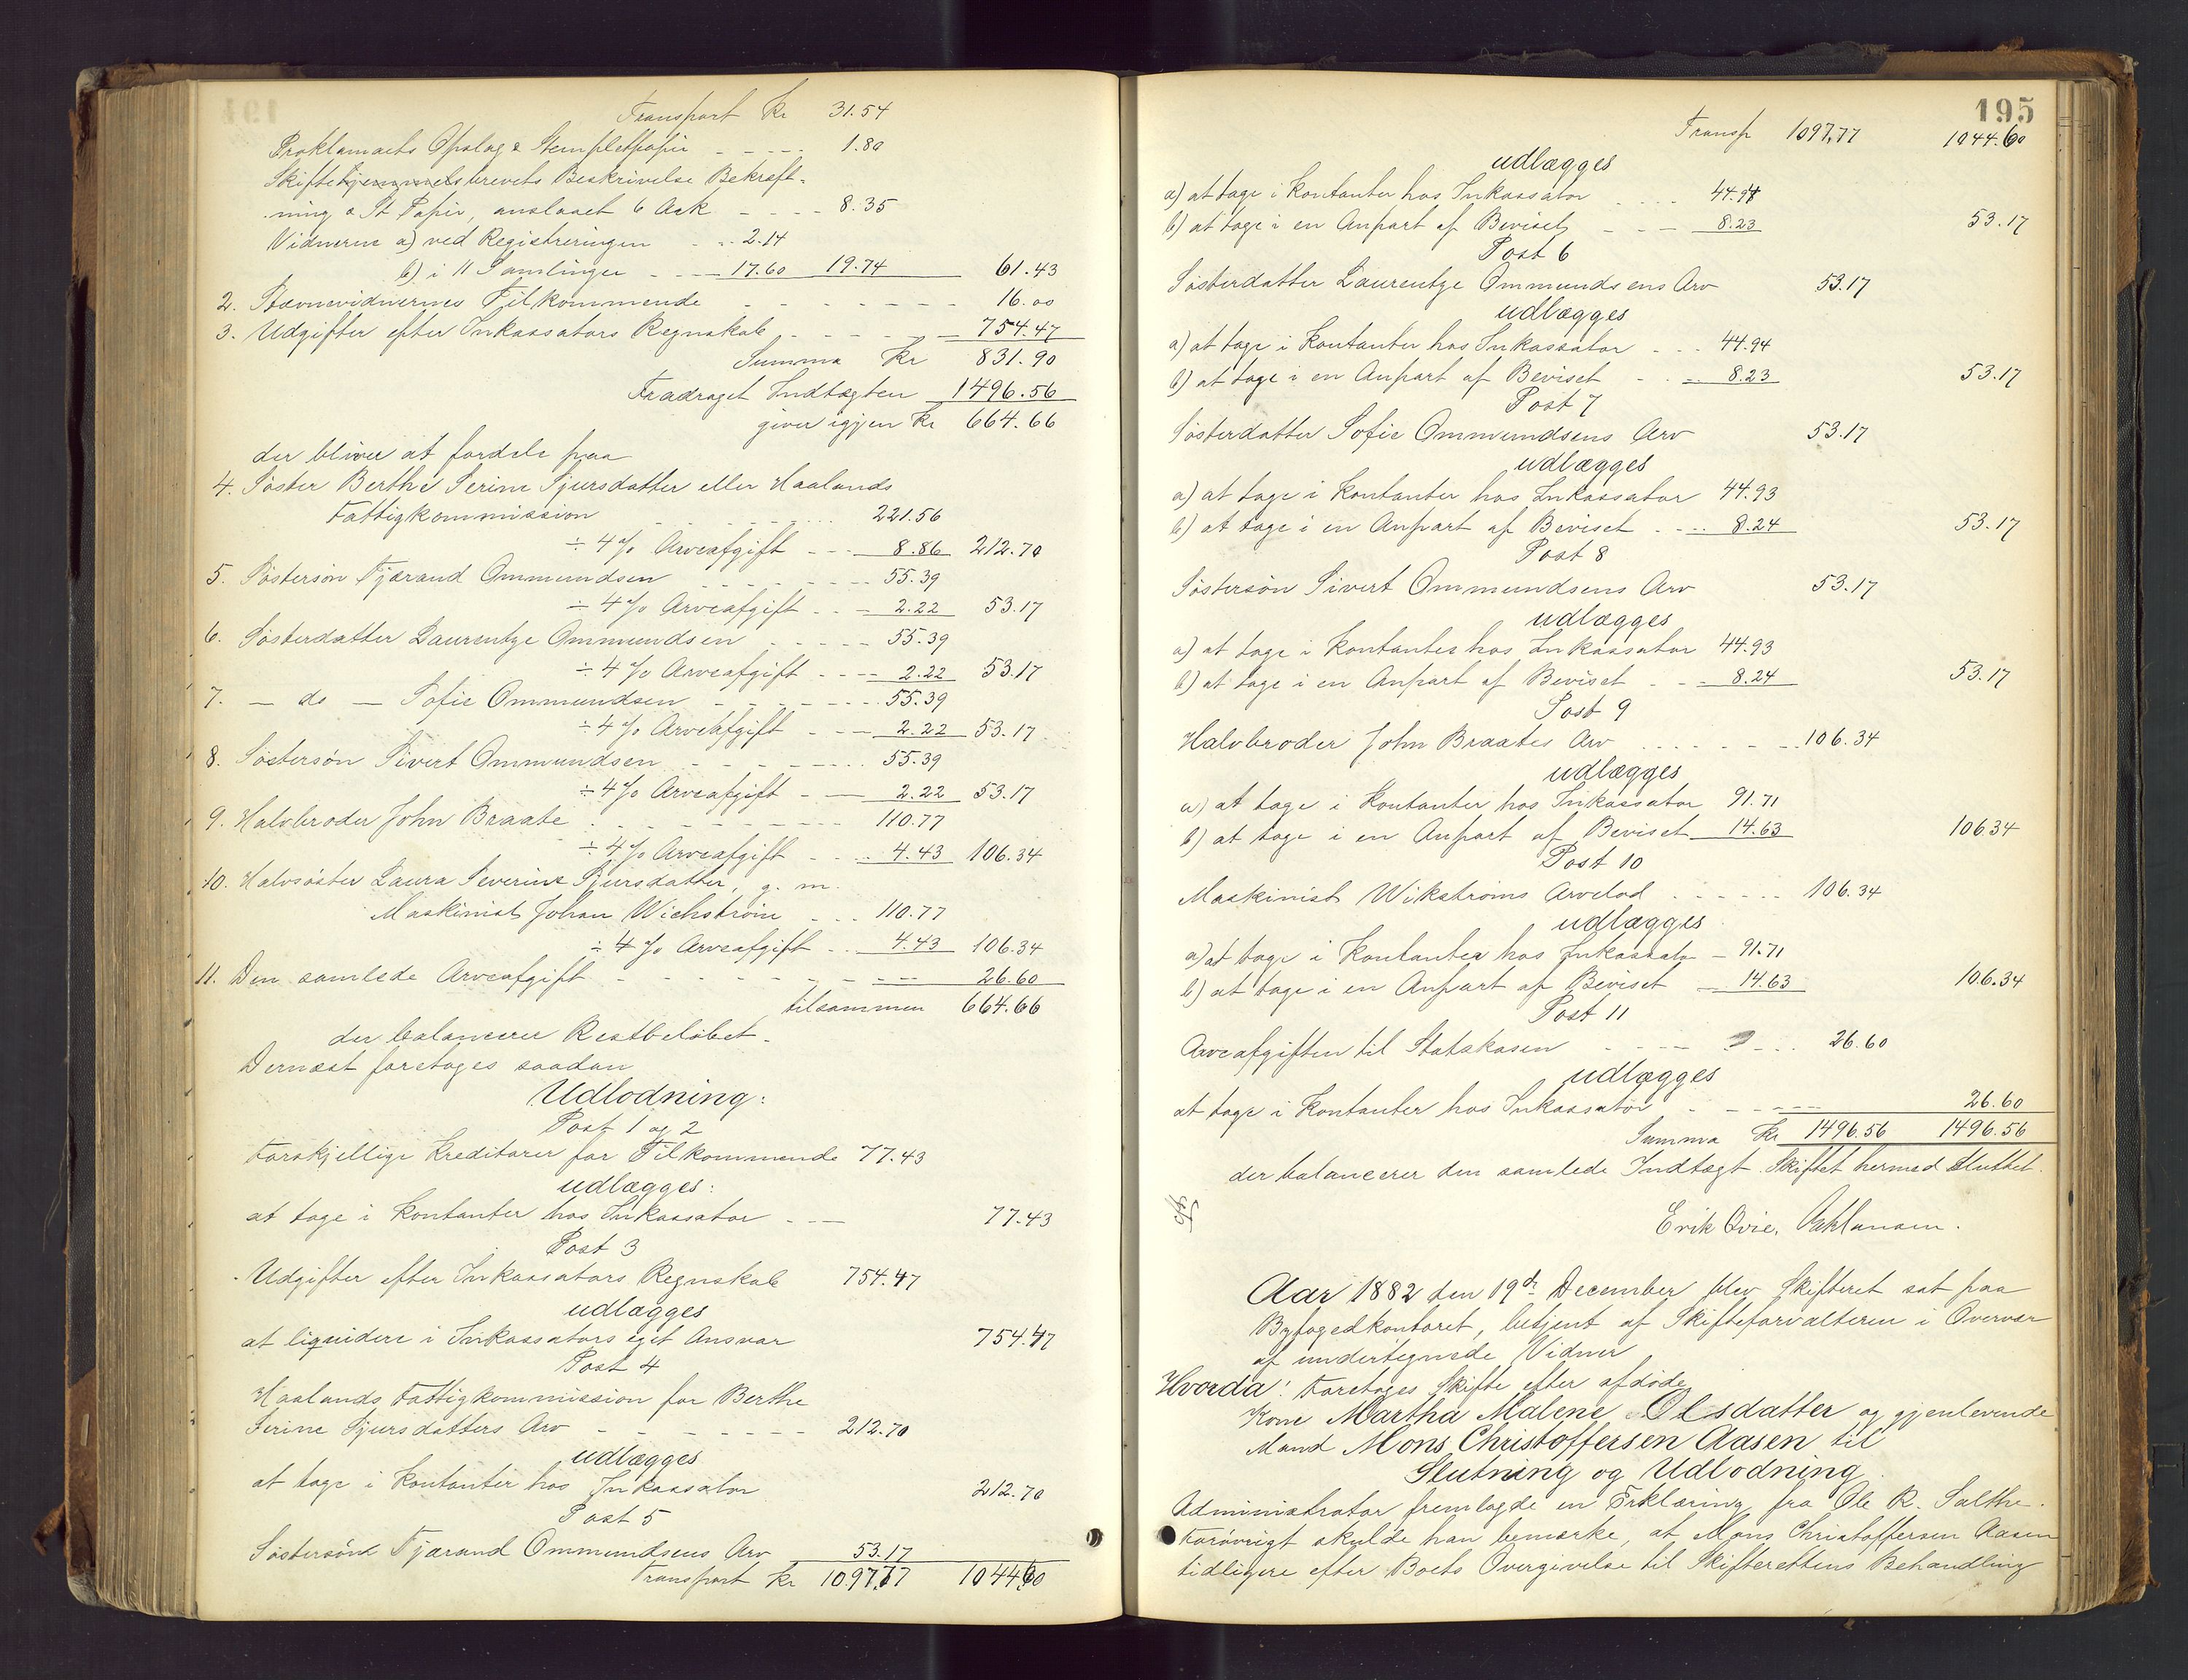 Transport Kr 31.54
Proklamaets Opslag & Stempletpapir - - - - 1.80
Skiftehjemmelsbrevets Beskrivelse Bekræft-
ning o St Papir, anslaaet 6 Ark - - - - 8.35
Vidnerne a) ved Registreringen - .. 2.14
b) i 11 Samlinger - - - 17.60 19.74 61.43
2. Stævnevidnernes Tilkommende - - - - - - - 16.00
3. Udgifter efter Inkassators Regnskab - - - - - 754.47
Summa Kr 831.90
Fradraget Indtægten 1496.56
giver igjen Kr 664.66
der bliver at fordele paa
4. Søster Berthe Serine Sjursdatter eller Haalands
Fattigkommission - - - - - 221.56
÷ 4 % Arveafgift - - - 8.86 212.70
5. Søstersøn Tjærand Ommundsen - - - - - 55.39
÷ 4 % Arveafgift - - - 2.22 53.17
6. Søsterdatter Laurentze Ommundsen - - - - - 55.39
÷ 4 % Arveafgift - - - - 2.22 53.17
7. — do — Sofie Ommundsen - - - - - - 55.39
÷ 4 % Arveafgift - - - 2.22 53.17
8. Søstersøn Sivert Ommundsen - - - - - - 55.39
÷ 4 % Arveafgift - — 2.22 53.17
9. Halvbroder John Braate - - - - - - - - 110.77
÷ 4 % Arveafgift - - - 4.43 106.34
10. Halvsøster Laura Severine Sjursdatter, g. m.
Maskinist Johan Wichstrøm - - - 110.77
÷ 4 % Arveafgift - - - 4.43 106.34
11. Den samlede Arveafgift - - - - - - - - - 26.60
tilsammen 664.66
der balancerer Restbeløbet.
Dernæst foretoges saadan
Udlodning:
Post 1 og 2
Forskjellige Kreditorer for Tilkommende 77.43
udlægges:
at tage i Kontanter hos Inkassator - - — 77.43
Post 3
Udgifter efter Inkassators Regnskab 754.47
udlægges
at liquidere i Inkassators eget Ansvar 754.47
Post 4
Haalands Fattigkommission for Berthe
Serine Sjursdatters Arv - - - - - - - 212.70
udlægges
at tage i Kontanter hos Inkassator 212.70
Post 5
Søstersøns Tjærand Ommundsens Arv 53.17
Transport Kr 1097.77 1044.60
195
Transp 1097.77 1044.60
udlægges
a) at tage i Kontanter hos Inkassator - - - - 44.94
b) at tage i en Anpart af Beviset - - — 8.23 53.17
Post 6
Søsterdatter Laurentze Ommundsens Arv 53.17
udlægges
a) at tage i Kontanter hos Inkassator - - - 44.94
b) at tage i en Anpart af Beviset - - .. 8.23 53.17
Post 7
Søsterdatter Sofie Ommundsens Arv 53.17
udlægges
a) at tage i Kontanter hos Inkassator 44.93
b) at tage i en Anpart af Beviset - - .. 8.24 53.17
Post 8
Søstersøn Sivert Ommundsens Arv 53.17
udlægges
a) at tage i Kontanter hos Inkassator 44.93
b) at tage i en Anpart af Beviset - - - 8.24 53.17
Post 9
Halvbroder John Braates Arv - - - - - - 106.34
udlægges
a) at tage i Kontanter hos Inkassator 91.71
b) at tage i en Anpart af Beviset 14.63 106.34
Post 10
Maskinist Wikstrøms Arvelod - - - - - - 106.34
udlægges
a) at tage i Kontanter hos Inkassator - 91.71
b) at tage i en Anpart af Beviset — 14.63 106.34
Post 11
Arveafgiften til Statskasen - - - — - - - 26.60
udlægges
at tage i Kontanter hos Inkassator - - - - - 26.60
Summa Kr 1496.56 1496.56
der balancerer den samlede Indtægt. Skiftet hermed sluttet.
Erik Qvie.
Aar 1882 den 19de December blev Skifteret sat paa
Byfogedkontoret, betjent af Skifteforvalteren i Overvær
af undertegnede Vidner
Hvorda: Foretoges Skifte efter afdøde
Kone Martha Malene Olsdatter og gjenlevende
Mand Mons Christoffersen Aasen til
Slutning og Udlodning.
Administrator fremlagde en Erklæring fra Ole R. Salthe.
Forøvrigt skulde han bemærke, at Mons Christoffersen Aasen
tidligere efter Boets Overgivelse til Skifterettens Behandling